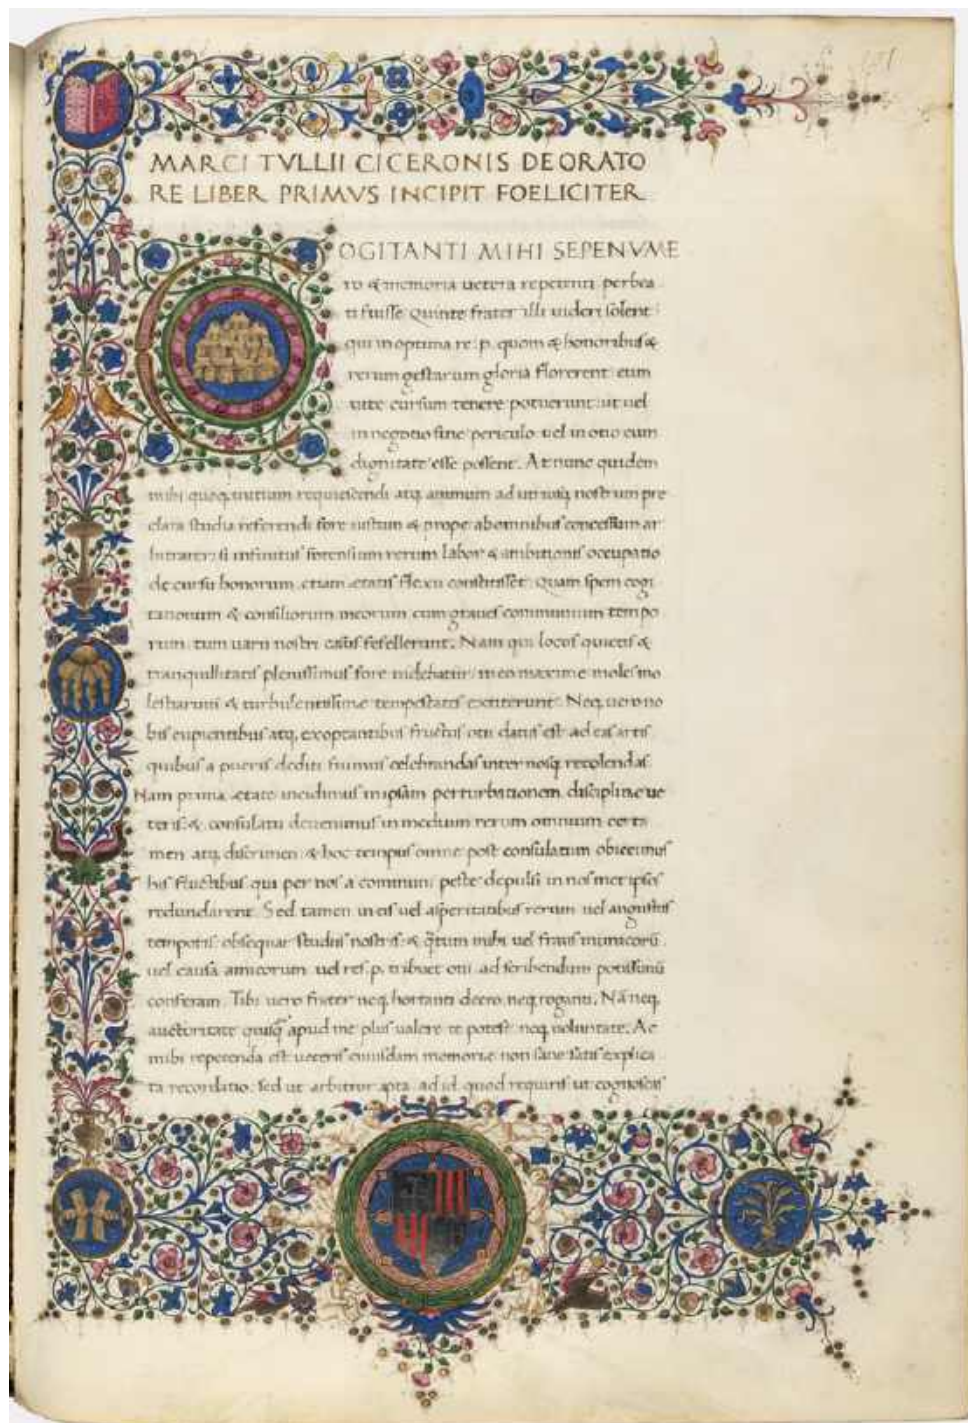 101
MARCI TVLLII CICERONIS DE ORATO
RE LIBER PRIMVS INCIPIT FOELICITER
COGITANTI MIHI SEPENVME
ro & memoria uetera repetenti perbea
ti fuisse Quinte frater illi uideri solent
qui in optima re .p. quom & honoribus &
rerum gestarum gloria florerent eum
uite cursum tenere potuerunt: ut uel
in negotio sine periculo uel in otio cum
dignitate esse possent. Ac nunc quidem
mihi quoq. initium requiescendi atq. animum ad utriusq. nostrum pre
clara studia referendi fore iustum & prope ab omnibus concessum ar
bitrarer: si infinitus forensium rerum labor & ambitionis occupatio
de cursu honorum etiam etatis flexu constitisset. Quam spem cogi
tationum & consiliorum meorum cum graues communium tempo
rum tum uarii nostri casus fefellerunt. Nam qui locus quietis &
tranquillitatis plenissimus fore uidebatur in eo maxime moles mo
lestiarum & turbulentissime tempestates extiterunt. Neq. uero no
bis cupientibus atq. exoptantibus fructus otii datus est ad eas artis
quibus a pueris dediti fuimus celebrandas inter nosq. recolendas.
Nam prima etate incidimus in ipsam perturbationem discipline ue
teris: & consulatu deuenimus in medium rerum omnium certa
men atq. discrimen & hoc tempus omne post consulatum obiecimus
his fluctibus qui per nos a communi peste depulsi in nosmet ipsos
redundarent. Sed tamen in eis uel asperitatibus rerum uel angustiis
temporis obsequar studiis nostris: & q̃tum mihi uel fraus inimicorũ
uel causa amicorum uel res .p. tribuet otii ad scribendum potissimũ
conferam. Tibi uero frater neq. hortanti deero neq. roganti. Nã neq.
auctoritate quisq̃ apud me plus ualere te potest neq. uoluntate. Ac
mihi repetenda est ueteris cuiusdam memorie non sane satis explica
ta recordatio: sed ut arbitror apta ad id quod requiris ut cognoscas